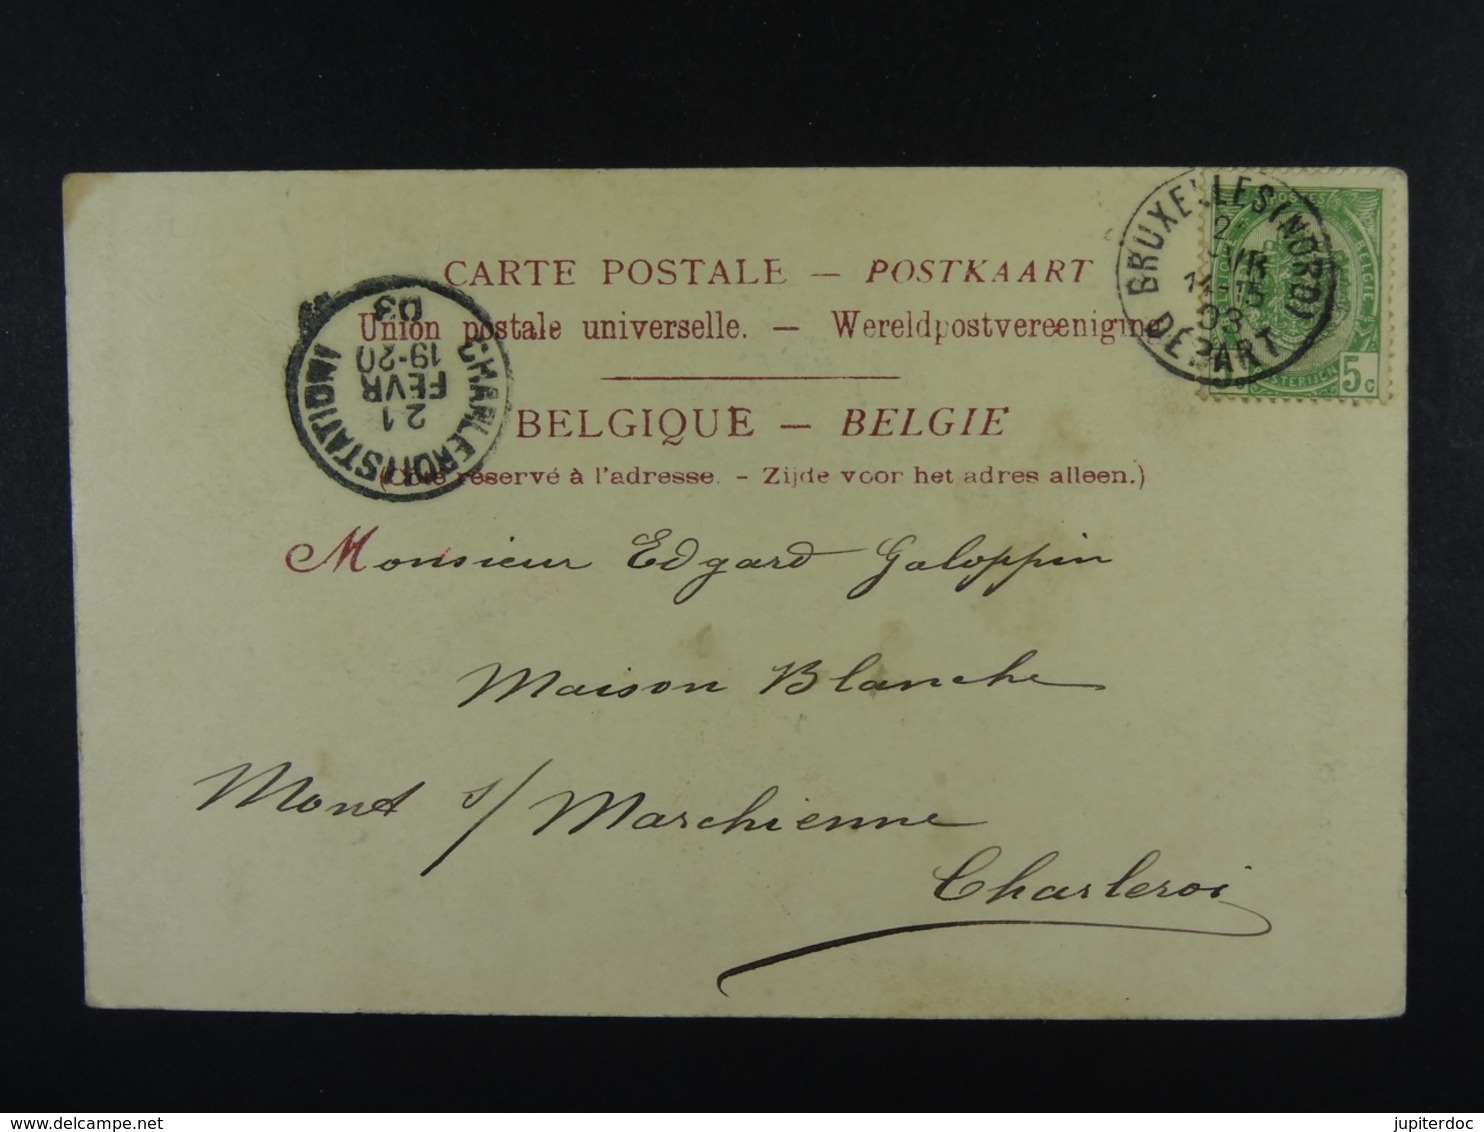 CARTE POSTALE — POSTKAART
Union postale universelle. — Wereldpostvereeniging
BELGIQUE — BELGIE
(Côté réservé à l'adresse. - Zijde voor het adres alleen.)
Monsieur Edgard Galoppin
Maison Blanche
Mont s/ Marchienne
Charleroi
CHARLEROI (STATION)
21
FEVR
19-20
03
BRUXELLES (NORD)
03
DEPART
POSTES
BELGIE
5c
jupiterdoc